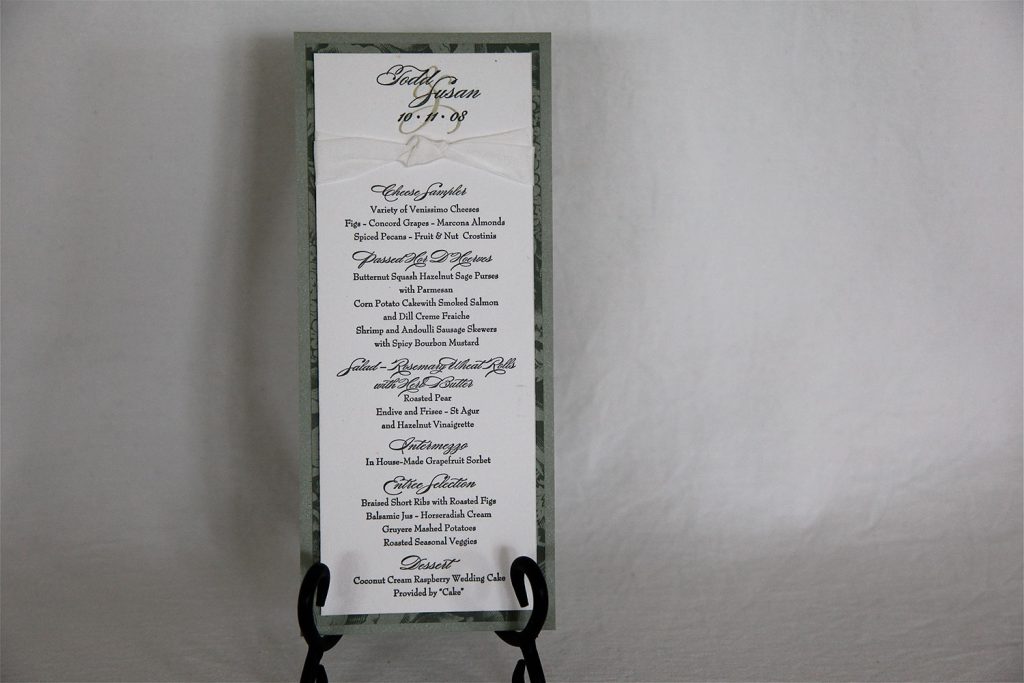 Todd
Susan
10 · 11 · 08
Cheese Sampler
Variety of Venissimo Cheeses
Figs ~ Concord Grapes ~ Marcona Almonds
Spiced Pecans ~ Fruit & Nut Crostinis
Passed Hor D'Hoervos
Butternut Squash Hazelnut Sage Purses
with Parmesan
Corn Potato Cakewith Smoked Salmon
and Dill Creme Fraiche
Shrimp and Andoulli Sausage Skewers
with Spicy Bourbon Mustard
Salad ~ Rosemary Wheat Rolls
with Herb Butter
Roasted Pear
Endive and Frisee ~ St Agur
and Hazelnut Vinaigrette
Intermezzo
In House-Made Grapefruit Sorbet
Entree Selection
Braised Short Ribs with Roasted Figs
Balsamic Jus ~ Horseradish Cream
Gruyere Mashed Potatoes
Roasted Seasonal Veggies
Dessert
Coconut Cream Raspberry Wedding Cake
Provided by "Cake"